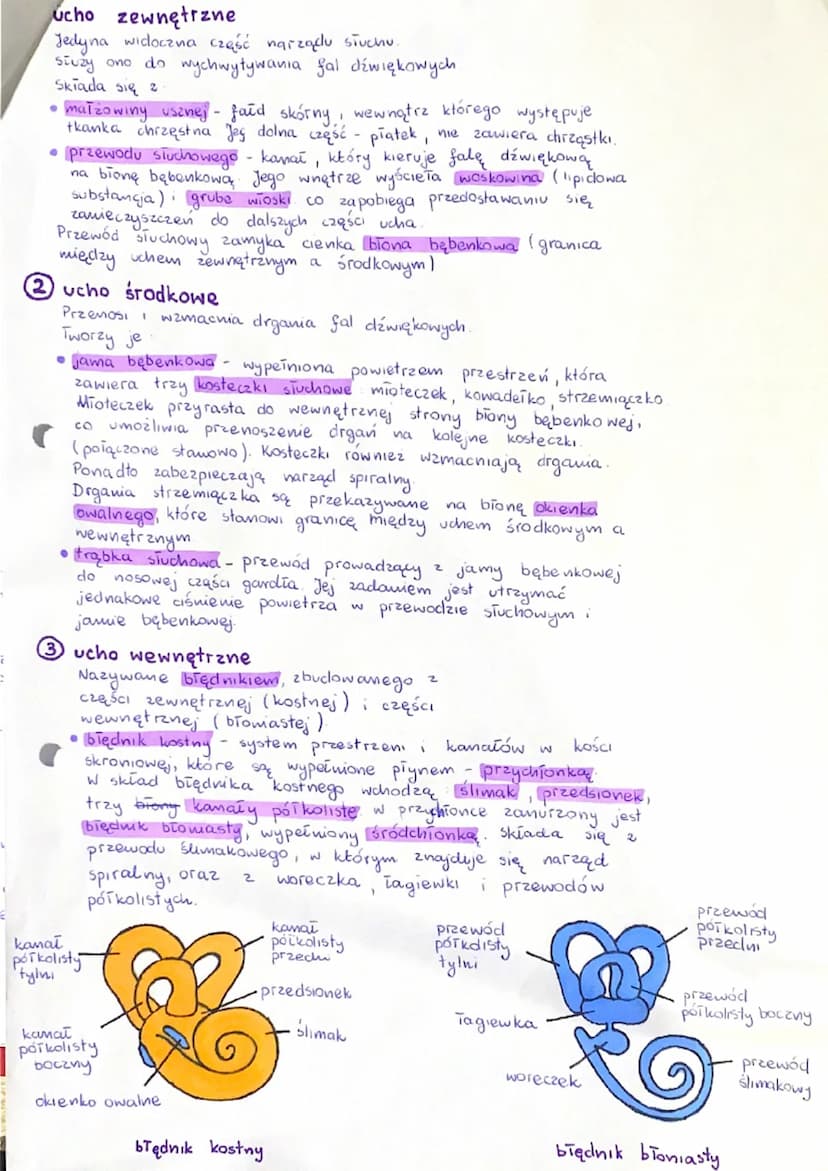 ucho zewnętrzne
Jedyna widoczna część narządu słuchu.
służy ono do wychwytywania fal dźwiękowych
Składa się z
• małżowiny usznej - fałd skórny, wewnątrz którego występuje
tkanka chrzęstna Jej dolna część - płatek, nie zawiera chrząstki.
• przewodu słuchowego - kanał, który kieruje falę dźwiękową
na błonę bębenkową. Jego wnętrze wyścieła woskowina (lipidowa
substancja) i grube włoski co zapobiega przedostawaniu się
zanieczyszczeń do dalszych części ucha.
Przewód słuchowy zamyka cienka błona bębenkowa (granica
między uchem zewnętrznym a środkowym)
2 ucho środkowe
Przenosi i wzmacnia drgania fal dźwiękowych.
Tworzy je
• jama bębenkowa - wypełniona powietrzem przestrzeń, która
zawiera trzy kosteczki słuchowe: młoteczek, kowadełko, strzemiączko
Młoteczek przyrasta do wewnętrznej strony błony bębenkowej,
co umożliwia przenoszenie drgań na kolejne kosteczki.
(połączone stawowo). Kosteczki również wzmacniają drgania.
Ponadto zabezpieczają narząd spiralny.
Drgania strzemiączka są przekazywane na błonę okienka
owalnego, które stanowi granicę między uchem środkowym a
wewnętrznym
• trąbka słuchowa - przewód prowadzący z jamy bębenkowej
do nosowej części gardła. Jej zadaniem jest utrzymać
jednakowe ciśnienie powietrza w przewodzie słuchowym i
jamie bębenkowej.
3 ucho wewnętrzne
Nazywane błędnikiem, zbudowanego z
części zewnętrznej (kostnej) i części
wewnętrznej (błoniastej)
• błędnik kostny - system przestrzeni i kanałów w kości
skroniowej, które są wypełnione płynem - przychłonką.
W skład błędnika kostnego wchodzą: ślimak, przedsionek,
trzy błony kanały półkoliste. w przychłonce zanurzony jest
błędnik błoniasty, wypełniony śródchłonką. Składa się z
przewodu ślimakowego, w którym znajduje się narząd
spiralny, oraz z woreczka, łagiewki i przewodów
półkolistych.
kanał
półkolisty
tylni
kanał
półkolisty
przedni
przedsionek
ślimak
kanał
półkolisty
boczny
okienko owalne
błędnik kostny
przewód
półkolisty
tylni
przewód
półkolisty
przedni
przewód
półkolisty boczny
łagiewka
woreczek
przewód
ślimakowy
błędnik błoniasty